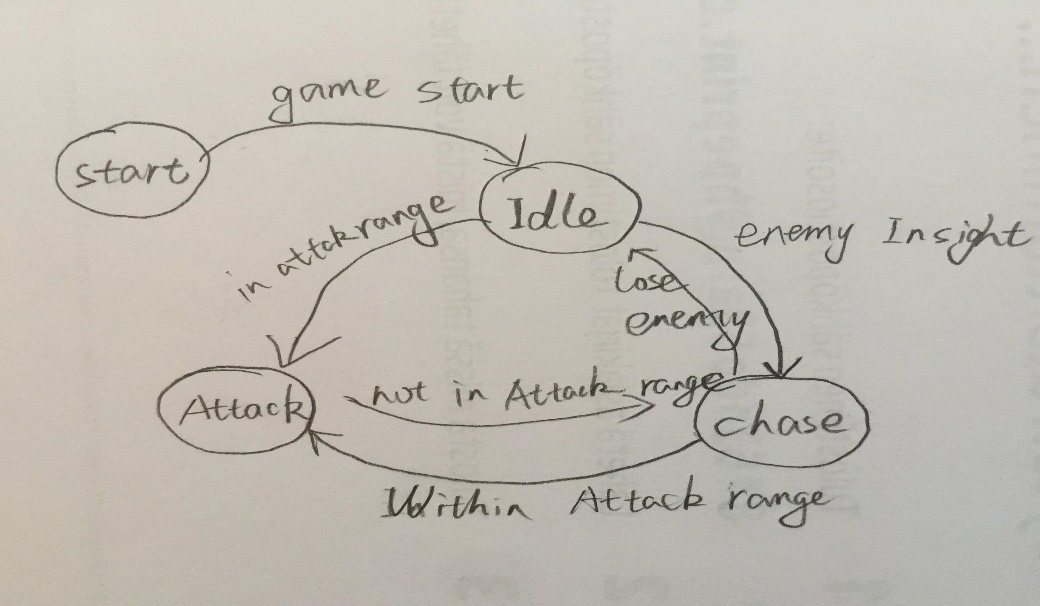 game start
start
Idle
in attak range
enemy Insight
lose
enemy
Attack
not in Attack range
chase
Within Attack range